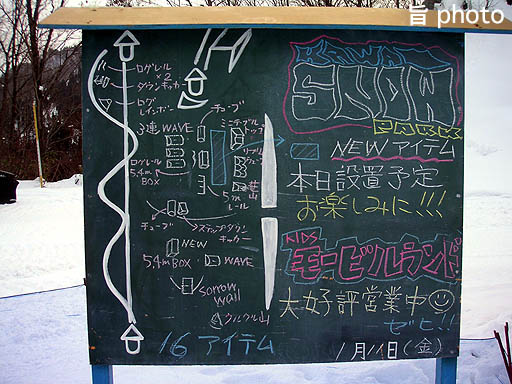 旨 photo
ログレール
×2
ダウンキッカー
ログ
レインボー
3連 WAVE
ログレール
5.4m
BOX
チューブ
ミニテーブル
トップ
5m
レール
チューブ
ステップダウン
キッカー
NEW
5.4m BOX
WAVE
Sorrow
wall
クルクル山
16 アイテム
SNOW
PARK
NEW アイテム
本日設置予定
お楽しみに!!!
KIDS
モービルランド
大好評営業中
ゼヒ!!
1月11日(金)